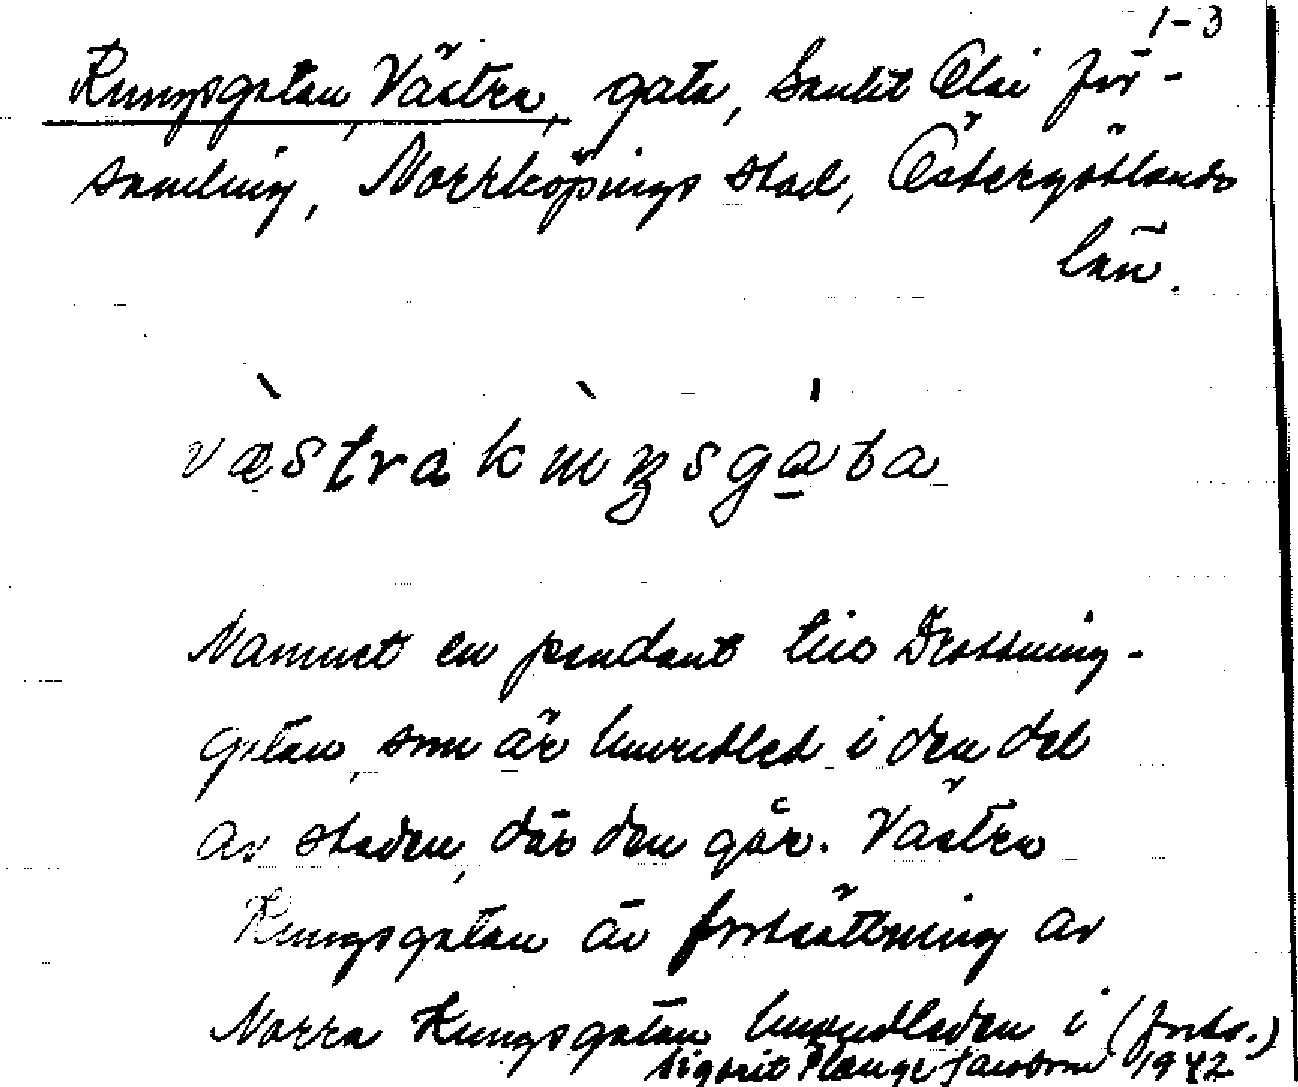 1-3
Kungsgatan, Västra, gata, Sankt Olai för-
samling, Norrköpings stad, Östergötlands
län.
væstra kuŋsgata
Namnet en pendant till Drottning-
gatan, som är huvudled i den del
av staden, där den går. Västra
Kungsgatan är fortsättning av
Norra Kungsgatan huvudleden i (forts.)
Sigurit Plænge Jacobson 1942